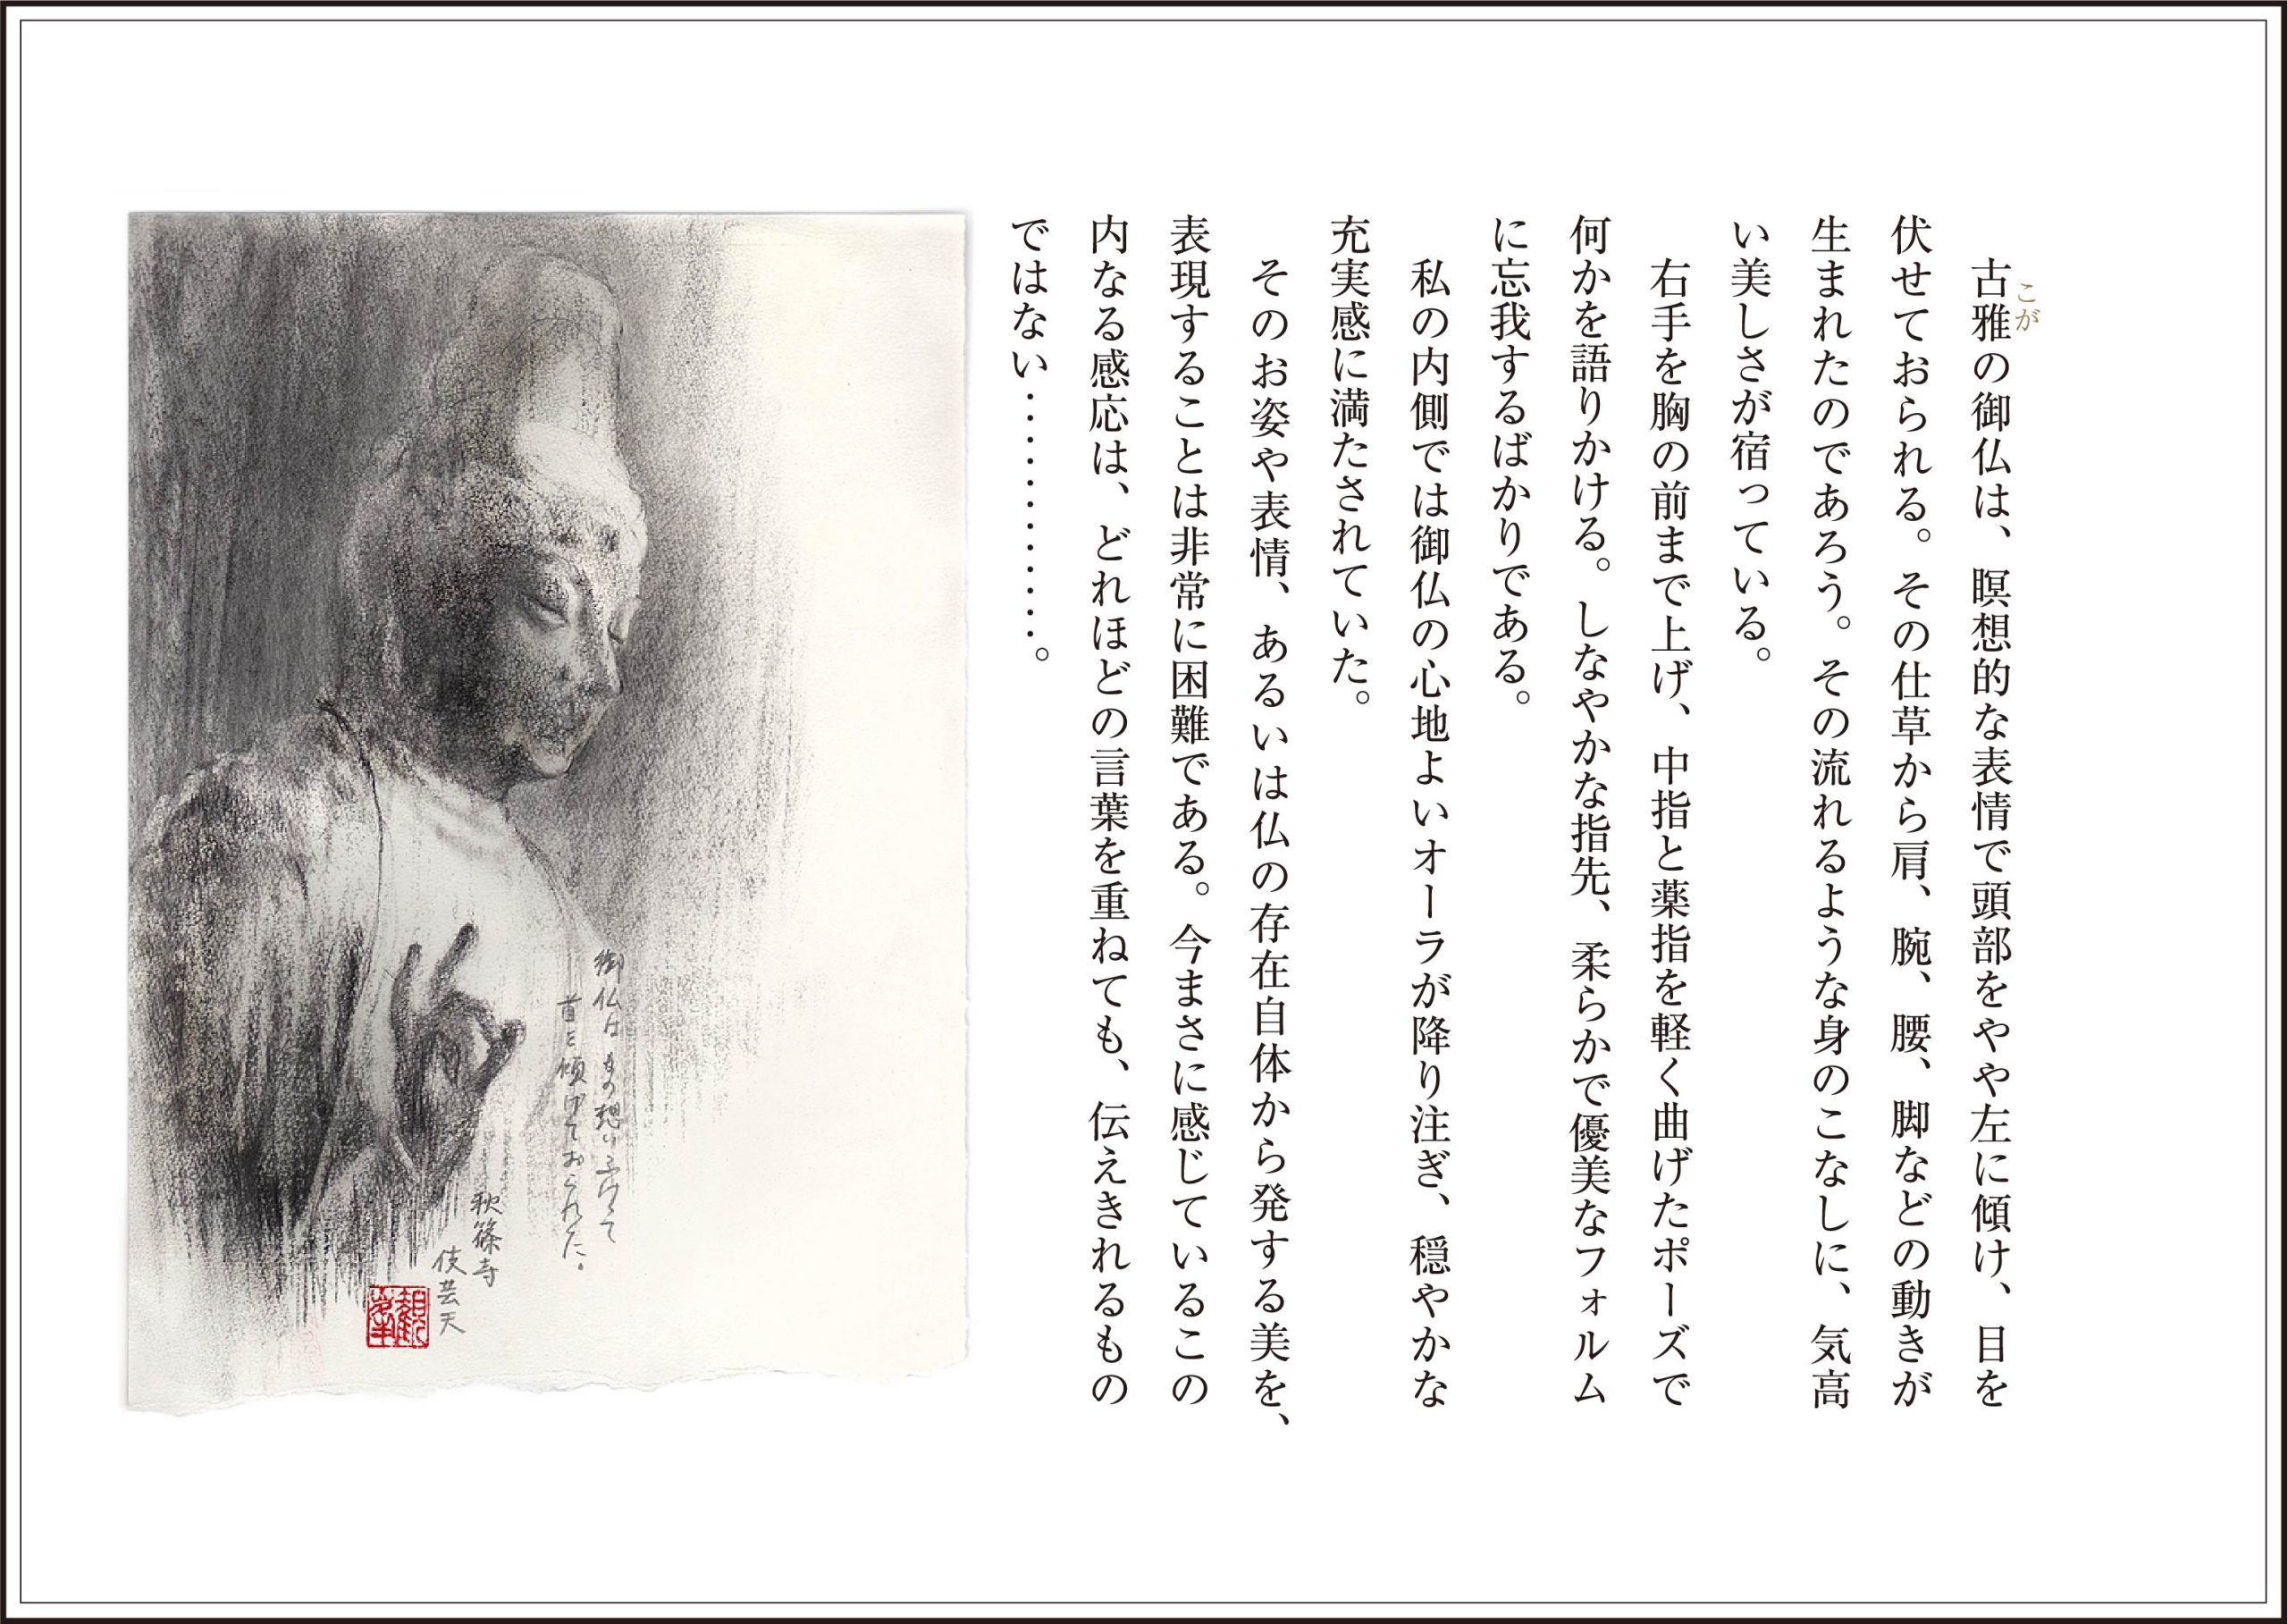 古雅の御仏は、瞑想的な表情で頭部をやや左に傾け、目を
こが
伏せておられる。その仕草から肩、腕、腰、脚などの動きが
生まれたのであろう。その流れるような身のこなしに、気高
い美しさが宿っている。
右手を胸の前まで上げ、中指と薬指を軽く曲げたポーズで
何かを語りかける。しなやかな指先、柔らかで優美なフォルム
に忘我するばかりである。
私の内側では御仏の心地よいオーラが降り注ぎ、穏やかな
充実感に満たされていた。
そのお姿や表情、あるいは仏の存在自体から発する美を、
表現することは非常に困難である。今まさに感じているこの
内なる感応は、どれほどの言葉を重ねても、伝えきれるもの
ではない…………。
御仏はもの想いふけって
首を傾げておられた。
秋篠寺
伎芸天